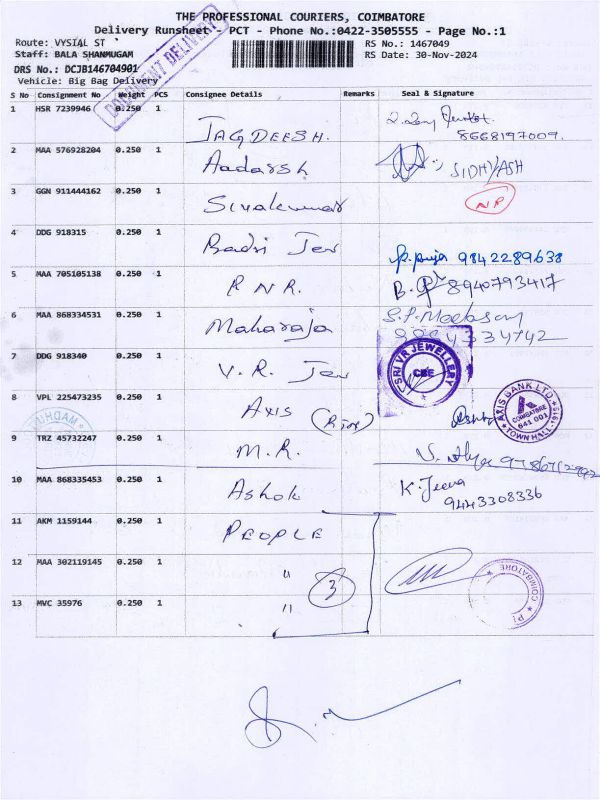 THE PROFESSIONAL COURIERS, COIMBATORE
Delivery Runsheet - PCT - Phone No.:0422-3505555 - Page No.:1
Route: VYSIAL ST
RS No.: 1467049
Staff: BALA SHANMUGAM
RS Date: 30-Nov-2024
DRS No.: DCJB146704901
Vehicle: Big Bag Delivery
DOCUMENT DELIVERY
S No Consignment No Weight PCS Consignee Details Remarks Seal & Signature
1 HSR 7239946 0.250 1 JAGDEESH.
8668197009.
2 MAA 576928204 0.250 1 Aadarssh SIDH/ASH
3 GGN 911444162 0.250 1 Sivakumar NP
4 DDG 918315 0.250 1 Badri Jew P. puja 9842289638
5 MAA 705105138 0.250 1 R N R. B. 8940793417
6 MAA 868334531 0.250 1 Maharaja S.P.
7 DDG 918340 0.250 1 V. R. Jew
SRI VR JEWELLERY
CBE
8 VPL 225473235 0.250 1 AXIS
AXIS BANK LTD.
COIMBATORE
641 001
TOWN HALL-1915
9 TRZ 45732247 0.250 1 M.R.
10 MAA 868335453 0.250 1 Ashok K. Jeeva
9443308336
11 AKM 1159144 0.250 1 PEOPLE
12 MAA 302119145 0.250 1 "
3
13 MVC 35976 0.250 1 "
COIMBATORE